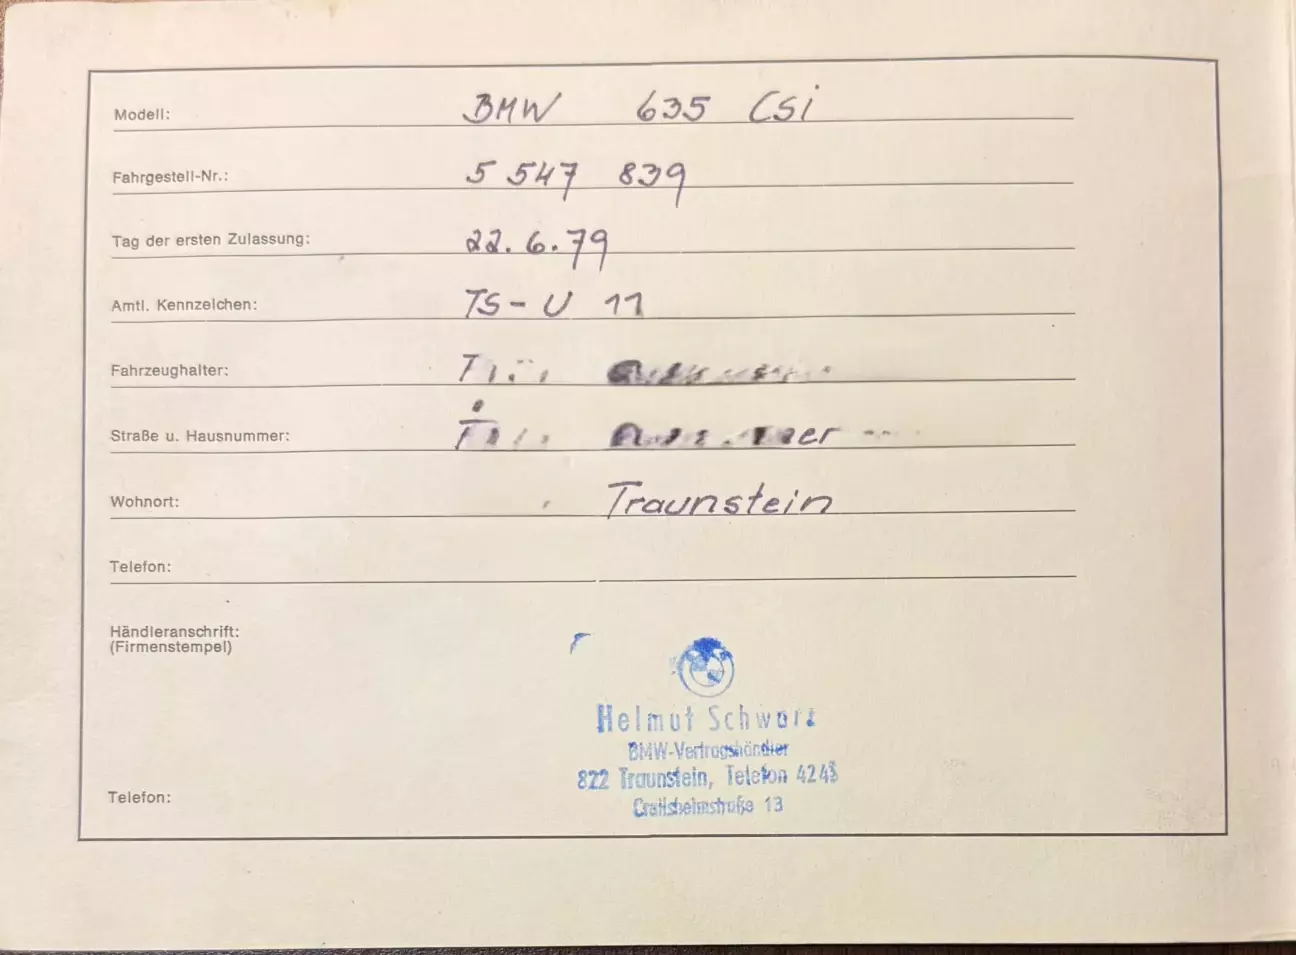 Modell: BMW 635 CSi
Fahrgestell-Nr.: 5 547 839
Tag der ersten Zulassung: 22.6.79
Amtl. Kennzeichen: TS-U 11
Fahrzeughalter:
Straße u. Hausnummer:
Wohnort: Traunstein
Telefon:
Händleranschrift:
(Firmenstempel)
Helmut Schwarz
BMW-Vertragshändler
822 Traunstein, Telefon 4243
Crailsheimstraße 13
Telefon: